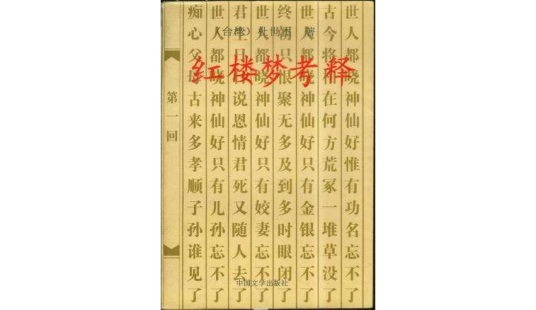 (台湾) 杜世杰 著
红楼梦考释
世人都晓神仙好惟有功名忘不了
古今将相在何方荒冢一堆草没了
世人都晓神仙好只有金银忘不了
终朝只恨聚无多及到多时眼闭了
世人都晓神仙好只有姣妻忘不了
君生日日说恩情君死又随人去了
世人都晓神仙好只有儿孙忘不了
痴心父母古来多孝顺子孙谁见了
第一回
中国文学出版社